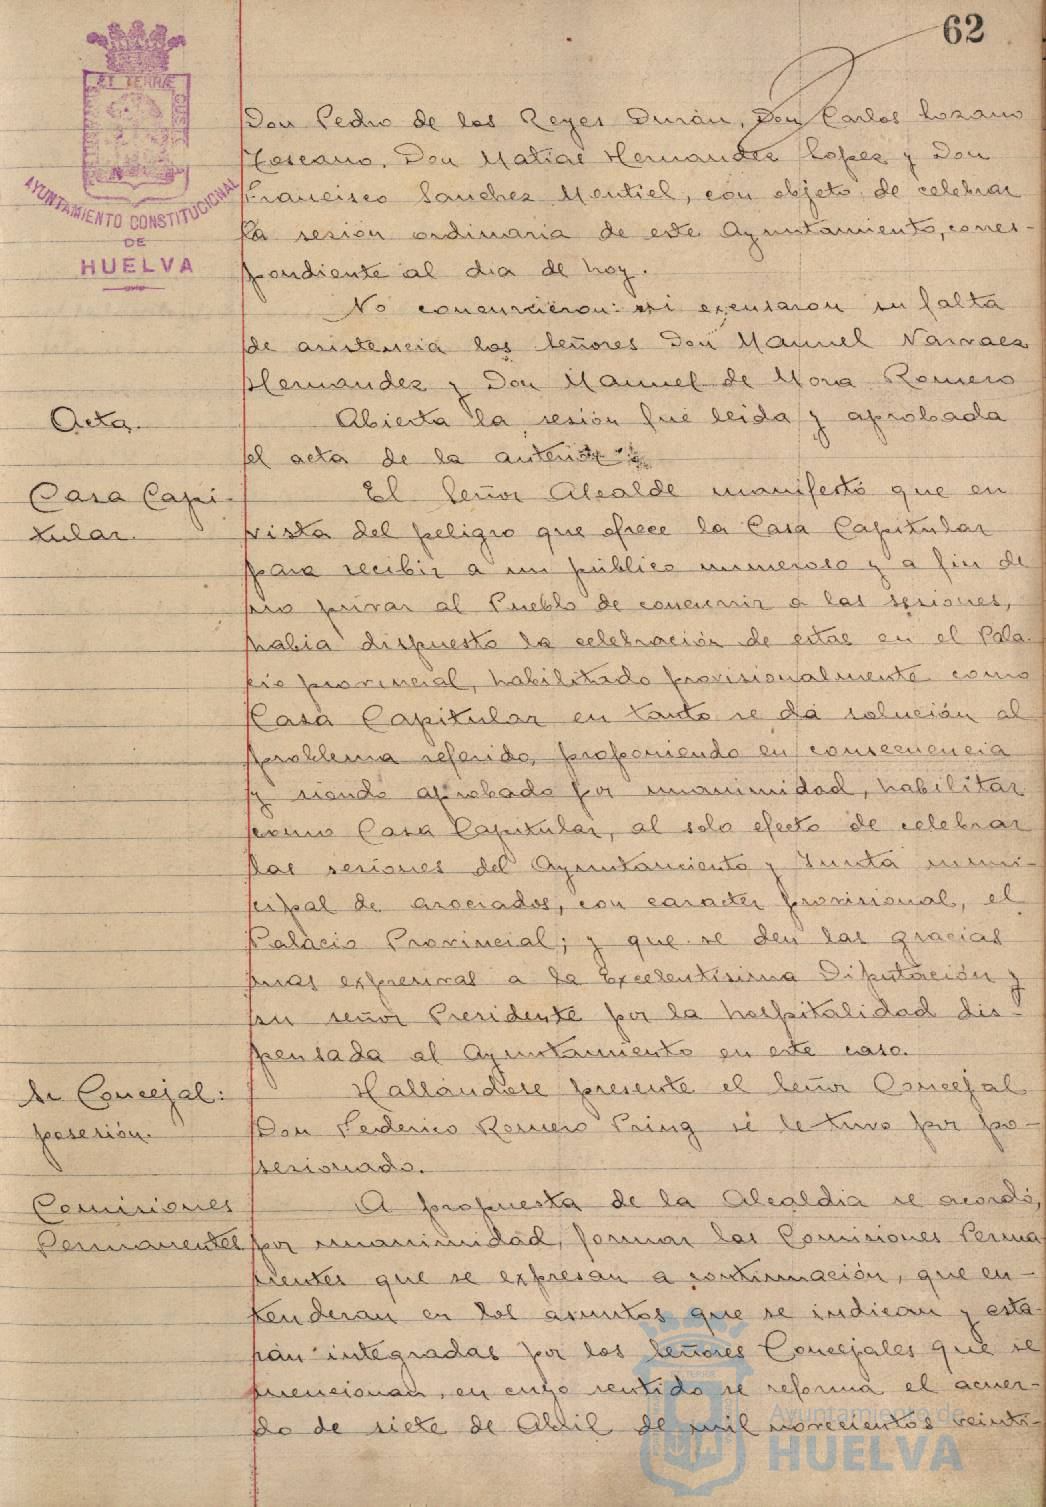 62
ET TERRÆ
AYUNTAMIENTO CONSTITUCIONAL
DE
HUELVA
Don Pedro de los Reyes Durán, Don Carlos Lozano
Toscano, Don Matias Hernandez Lopez y Don
Francisco Sanchez Montiel, con objeto de celebrar
la sesión ordinaria de este Ayuntamiento, corres-
pondiente al dia de hoy.
No concurrieron: ni excusaron su falta
de asistencia los Señores Don Manuel Narvaez
Hernandez y Don Manuel de Mora Romero
Acta.
Abierta la sesión fué leida y aprobada
el acta de la anterior
Casa Capi-
tular.
El Señor Alcalde manifestó que en
vista del peligro que ofrece la Casa Capitular
para recibir a un público numeroso y a fin de
no privar al Pueblo de concurrir a las sesiones,
habia dispuesto la celebración de estas en el Pala-
cio provincial, habilitado provisionalmente como
Casa Capitular en tanto se dá solución al
problema referido, proponiendo en consecuencia
y siendo aprobado por unanimidad, habilitar
como Casa Capitular, al solo efecto de celebrar
las sesiones del Ayuntamiento y Junta muni-
cipal de asociados, con caracter provisional, el
Palacio Provincial; y que se den las gracias
mas expresivas a la Excelentísima Diputación y
su señor Presidente por la hospitalidad dis-
pensada al Ayuntamiento en este caso.
Sr Concejal:
posesión.
Hallándose presente el Señor Concejal
Don Federico Romero Pring sé le tuvo por po-
sesionado.
Comisiones
Permanentes
A propuesta de la Alcaldia se acordó,
por unanimidad, formar las Comisiones Perma
nentes que se expresan a continuación, que en-
tenderan en los asuntos que se indican y esta-
rán integradas por los Señores Concejales que se
mencionan, en cuyo sentido se reforma el acuer-
do de siete de Abril de mil novecientos veinti-
Ayuntamiento de
HUELVA